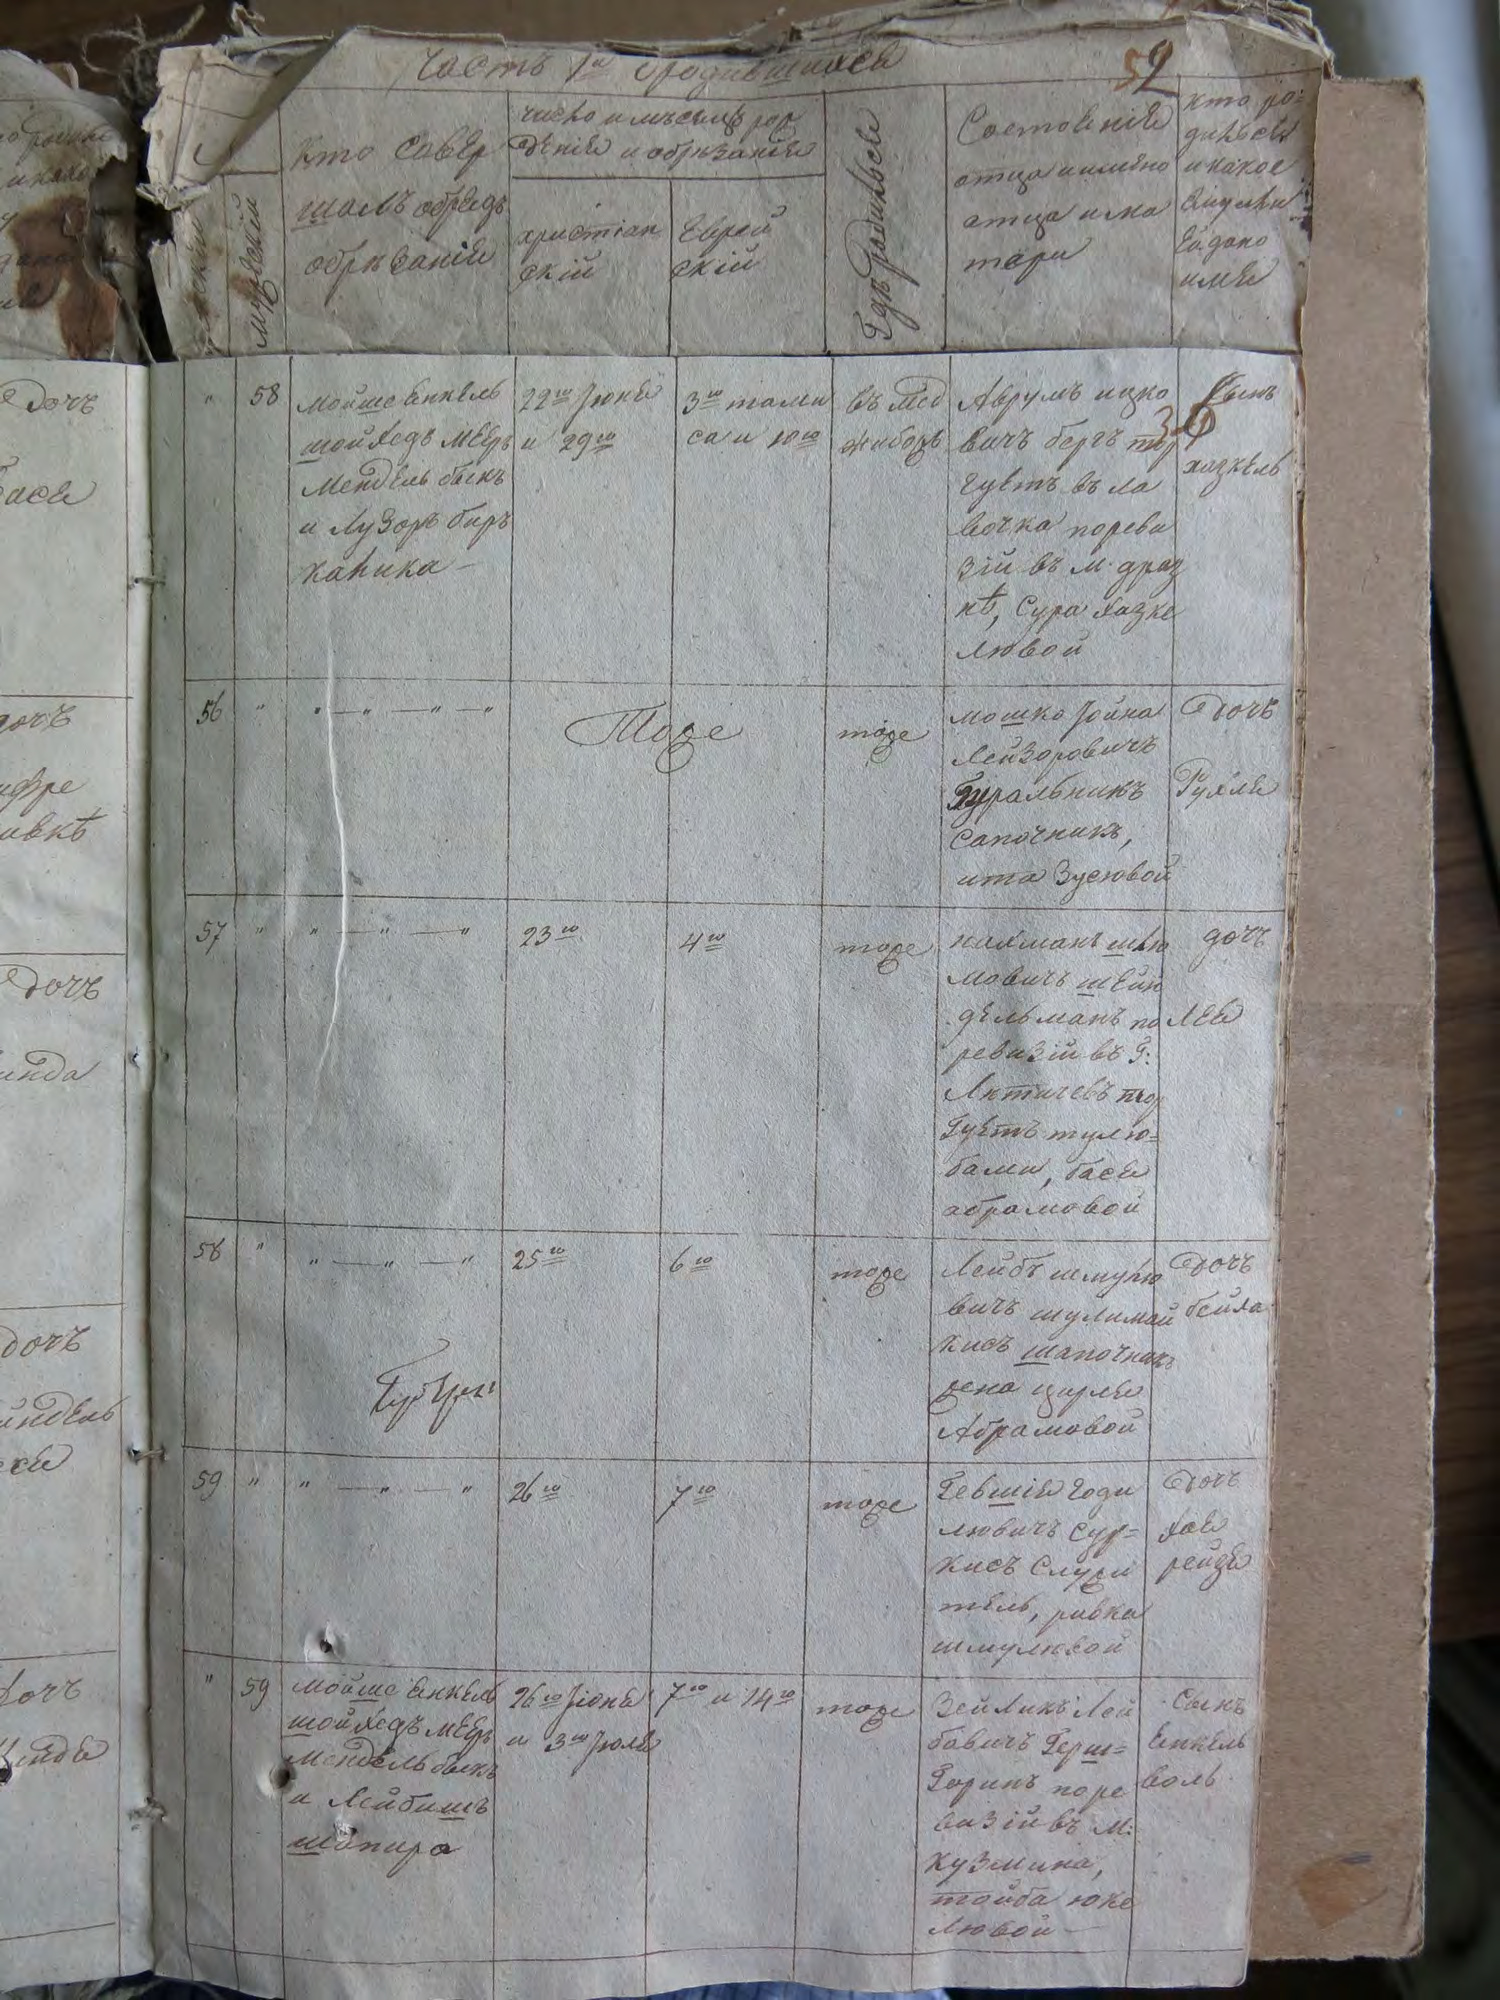 Часть 1я о родившихся
59
женскій
мужескій
Кто совер
шалъ обрядъ
обрѣзанія
число и мѣсяцъ рож
денія и обрѣзанія
христіан
скій
Еврей
скій
Гдѣ родился
Состояніе
отца и имена
отца и ма
тери
Кто ро-
дился
и какое
ему или
ей дано
имя
" 58
Мойше Енкель
шойхедъ Мееръ
Мендель быкъ
и Лузоръ бир
каника
22го Іюня
и 29го
3го тами
са и 10го
въ Мед
жибожъ
Аврумъ ицко
вичъ бергъ тор
гуетъ въ ла
вочка по реви
зіи въ м. драж
нѣ, Сура Хазке
лювой
Сынъ
Хазкель
56 " " — " — " — "
Тоже
тоже
Мошко Іойна
Лейзоровичъ
Гуральникъ
Сапочникъ,
ита Зусювой
Дочъ
Рухля
57 " " — " — "
23го
4го
тоже
Нахманъ шлю
мовичъ шейн
дельманъ по
ревизіи въ г:
Литичевъ тор
гуетъ тулю-
бами, бася
абрамовой
дочъ
Лея
58 " " — " — "
25го
6го
тоже
Лейбъ шмулю
вичъ шулимай
кисъ шапочникъ
жена цирля
Абрамовой
Дочъ
бейла
59 " " — " — "
26го
7го
тоже
Гевшія Годи
лювичъ сур-
кисъ Служи
тель, ривка
шмулювой
Дочъ
Хая
рейзя
" 59
Мойше Енкель
шойхедъ Мееръ
Мендель быкъ
и Лейбишъ
шапира
26го Іюня
и 3го Іюля
7го и 14го
тоже
Зейликъ Лей
бовичъ Герш-
Горинъ по ре
визіи въ м:
Кузмина,
тойба юке
лювой
Сынъ
Енкель
воль